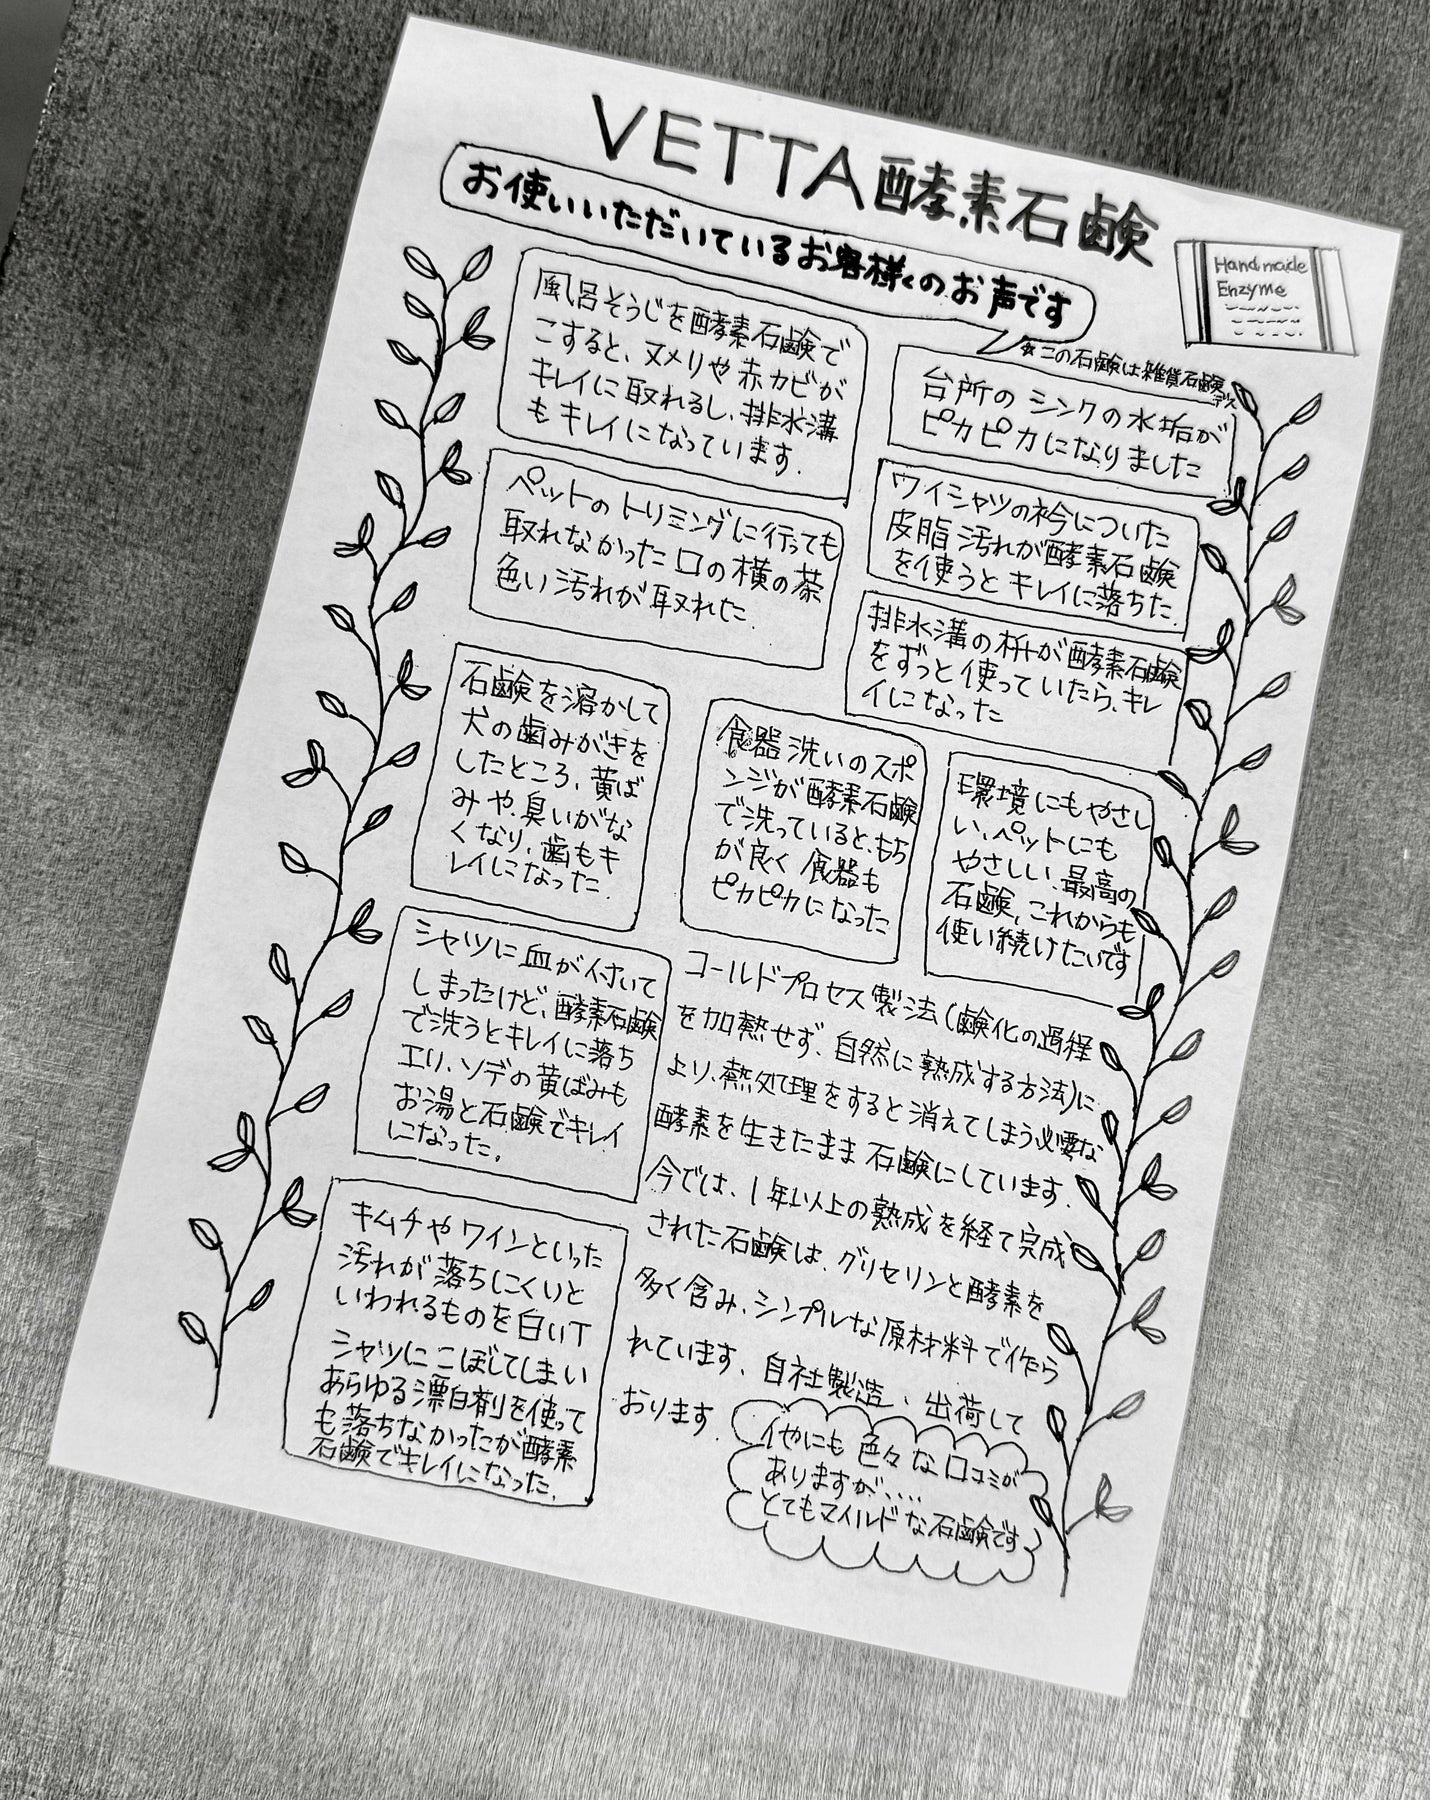 VETTA酵素石鹸
お使いいただいているお客様のお声です
Handmade
Enzyme
☆この石鹸は雑貨石鹸
デス
風呂そうじを酵素石鹸で
こすると、ヌメリや赤カビが
キレイに取れるし、排水溝
もキレイになっています.
台所のシンクの水垢が
ピカピカになりました
ペットのトリミングに行っても
取れなかった口の横の茶
色い汚れが取れた.
ワイシャツの衿についた
皮脂汚れが酵素石鹸
を使うとキレイに落ちた.
排水溝の枡が酵素石鹸
をずっと使っていたら、キレ
イになった
石鹸を溶かして
犬の歯みがきを
したところ、黄ば
みや、臭いがな
くなり、歯もキ
レイになった.
食器洗いのスポ
ンジが酵素石鹸
で洗っていると、もち
が良く食器も
ピカピカになった
環境にもやさし
い、ペットにも
やさしい、最高の
石鹸、これからも
使い続けたいです
シャツに血が付いて
しまったけど、酵素石鹸
で洗うとキレイに落ち
エリ、ソデの黄ばみも
お湯と石鹸でキレイ
になった。
キムチやワインといった
汚れが落ちにくいと
いわれるものを白いT
シャツにこぼしてしまい
あらゆる漂白剤を使って
も落ちなかったが酵素
石鹸でキレイになった.
コールドプロセス製法(鹸化の過程
を加熱せず、自然に熟成する方法)に
より、熱処理をすると消えてしまう必要な
酵素を生きたまま石鹸にしています.
今では、1年以上の熟成を経て完成
された石鹸は、グリセリンと酵素を
多く含み、シンプルな原材料で作ら
れています、自社製造、出荷して
おります.
他にも色々な口コミが
ありますが、...
とてもマイルドな石鹸です